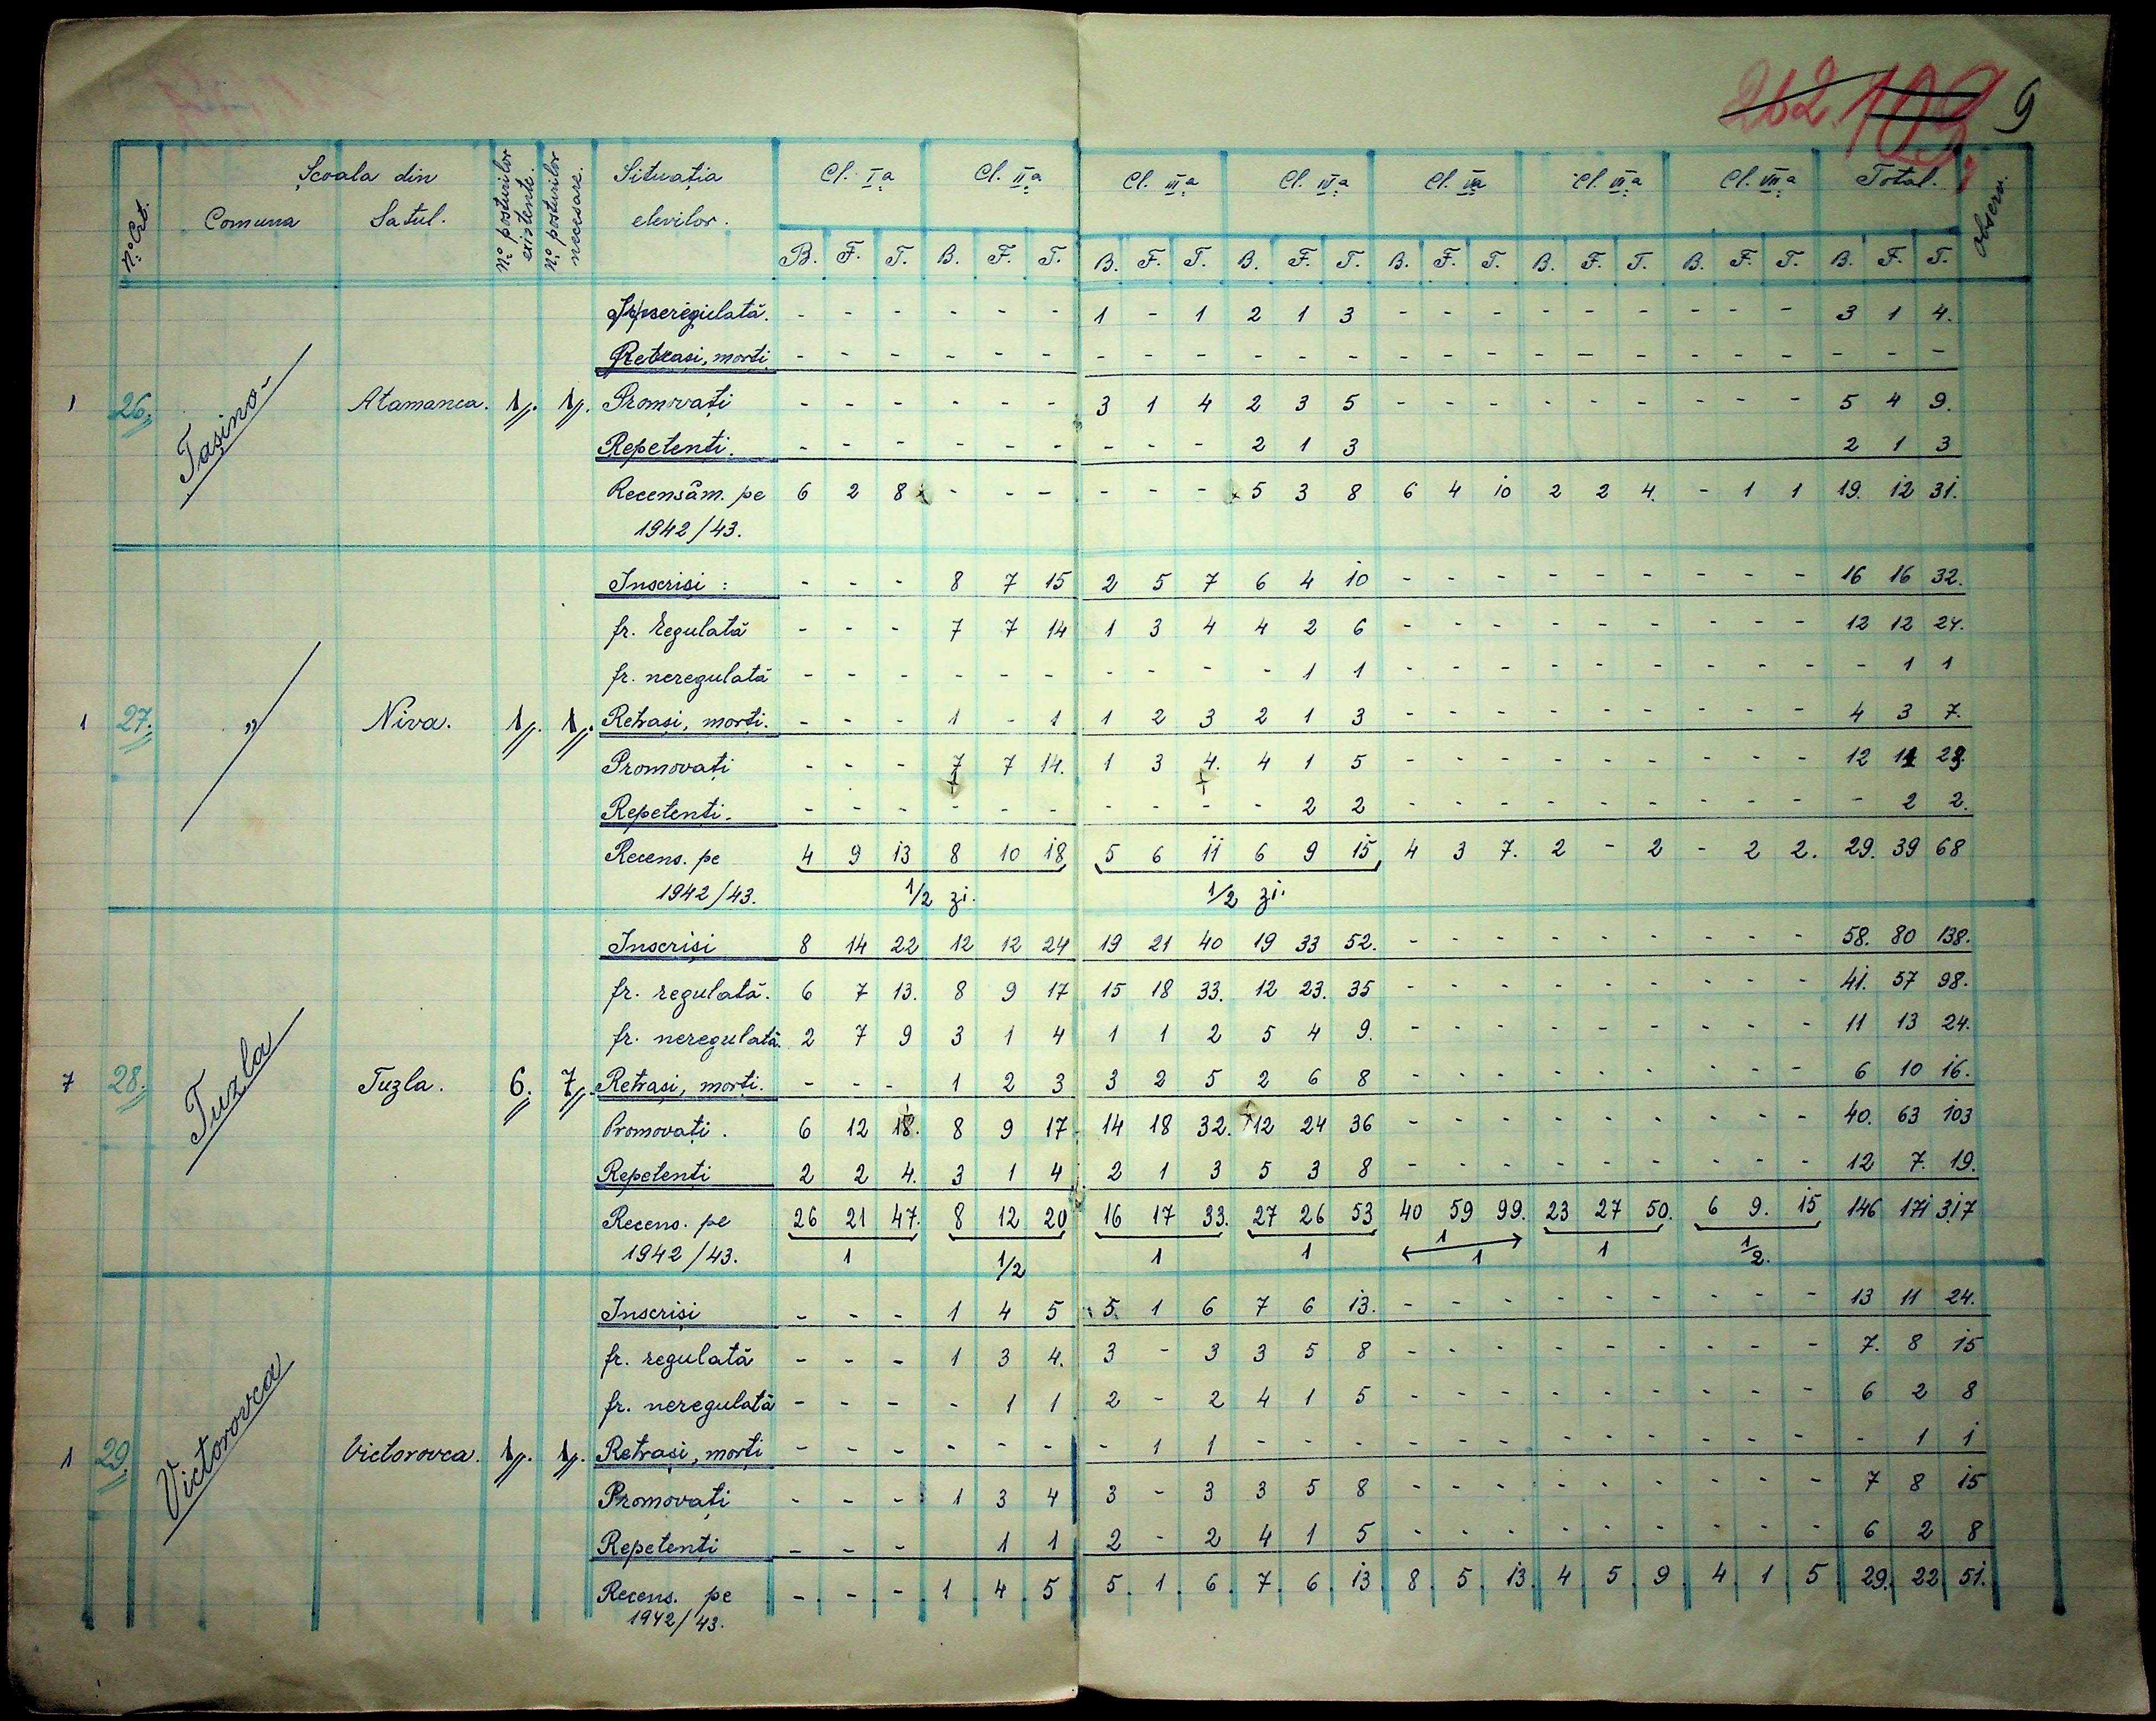 262. 109. 9
N.º Crt. Școala din Nº posturilor existente. Nº posturilor necesare. Situația Cl. I.a Cl. II.a Cl. III.a Cl. IV.a Cl. V.a Cl. VI.a Cl. VII.a Total. observ.
Comuna Satul. elevilor.
B. F. T. B. F. T. B. F. T. B. F. T. B. F. T. B. F. T. B. F. T. B. F. T.
- - - - - - 1 - 1 2 1 3 - - - - - - - - - 3 1 4.
Retrași, morți - - - - - - - - - - - - - - - - - - - - - - - -
1 26. Tașino Atamanca. 1p. 1p. Promovați - - - - - - 3 1 4 2 3 5 - - - - - - - - - 5 4 9.
Repetenți. - - - - - - - - - 2 1 3 2 1 3
Recensăm. pe 6 2 8 x - - - - - - x 5 3 8 6 4 10 2 2 4. - 1 1 19. 12 31.
1942/43.
Inscriși : - - - 8 7 15 2 5 7 6 4 10 - - - - - - - - - 16 16 32.
fr. regulată - - - 7 7 14 1 3 4 4 2 6 - - - - - - - - - 12 12 24.
fr. neregulată - - - - - - - - - - 1 1 - - - - - - - - - - 1 1
1 27. " Niva. 1p. 1p. Retrași, morți. - - - 1 - 1 1 2 3 2 1 3 - - - - - - - - - 4 3 7.
Promovați - - - 7 7 14. 1 3 4. 4 1 5 - - - - - - - - - 12 11 23.
Repetenți. - - - - - - - - - - 2 2 - - - - - - - - - - 2 2.
Recens. pe 4 9 13 8 10 18 5 6 11 6 9 15 4 3 7. 2 - 2 - 2 2. 29. 39 68
1942/43. 1/2 zi. 1/2 zi.
Inscriși 8 14 22 12 12 24 19 21 40 19 33 52. - - - - - - - - - 58. 80 138.
fr. regulată. 6 7 13. 8 9 17 15 18 33. 12 23. 35 - - - - - - - - - 41. 57 98.
fr. neregulată. 2 7 9 3 1 4 1 1 2 5 4 9. - - - - - - - - - 11 13 24.
7 28. Tuzla Tuzla. 6. 7p. Retrași, morți. - - - 1 2 3 3 2 5 2 6 8 - - - - - - - - - 6 10 16.
Promovați. 6 12 18. 8 9 17 14 18 32. 12 24 36 - - - - - - - - - 40. 63 103
Repetenți 2 2 4. 3 1 4 2 1 3 5 3 8 - - - - - - - - - 12 7. 19.
Recens. pe 26 21 47. 8 12 20 16 17 33. 27 26 53 40 59 99. 23 27 50. 6 9. 15 146 171 317
1942/43. 1 1/2 1 1 1 1 1 1/2.
Inscriși - - - 1 4 5 5. 1 6 7 6 13. - - - - - - - - - 13 11 24.
fr. regulată - - - 1 3 4. 3 - 3 3 5 8 - - - - - - - - - 7. 8 15
fr. neregulată - - - - 1 1 2 - 2 4 1 5 - - - - - - - - - 6 2 8
1 29. Victorovca Victorovca. 1p. 1p. Retrași, morți - - - - - - - 1 1 - - - - - - - - - - - - - 1 1
Promovați - - - 1 3 4 3 - 3 3 5 8 - - - - - - - - - 7 8 15
Repetenți - - - 1 1 2 - 2 4 1 5 - - - - - - - - - 6 2 8
Recens. pe - - - 1 4 5 5. 1 6 7 6 13 8 5 13. 4 5 9 4 1 5 29. 22 51.
1942/43.